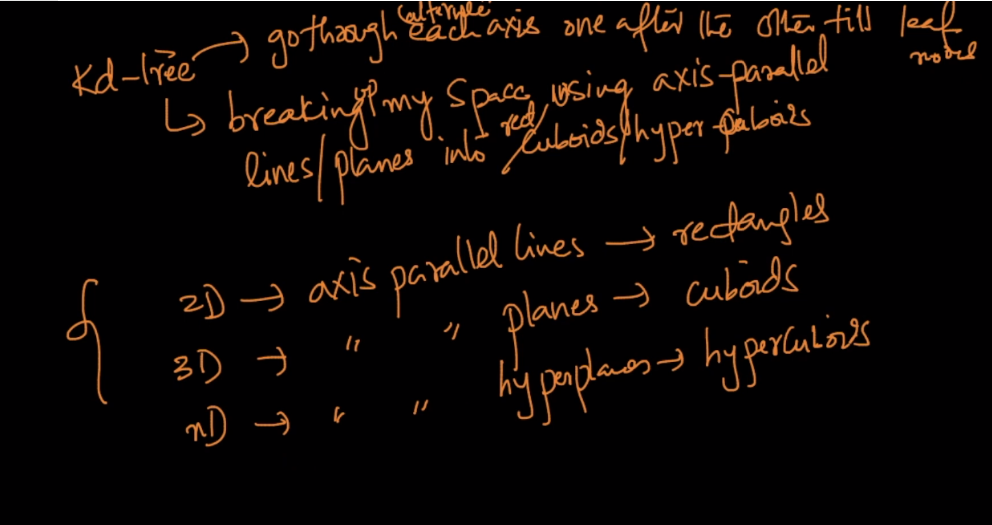 (alternate)
Kd-tree → go through each axis one after the other till leaf node
↳ breaking up my space using axis-parallel
lines/planes into rect/cuboids/hyper-cuboids
2D → axis parallel lines → rectangles
3D → " " planes → cuboids
nD → " " hyperplanes → hypercuboids